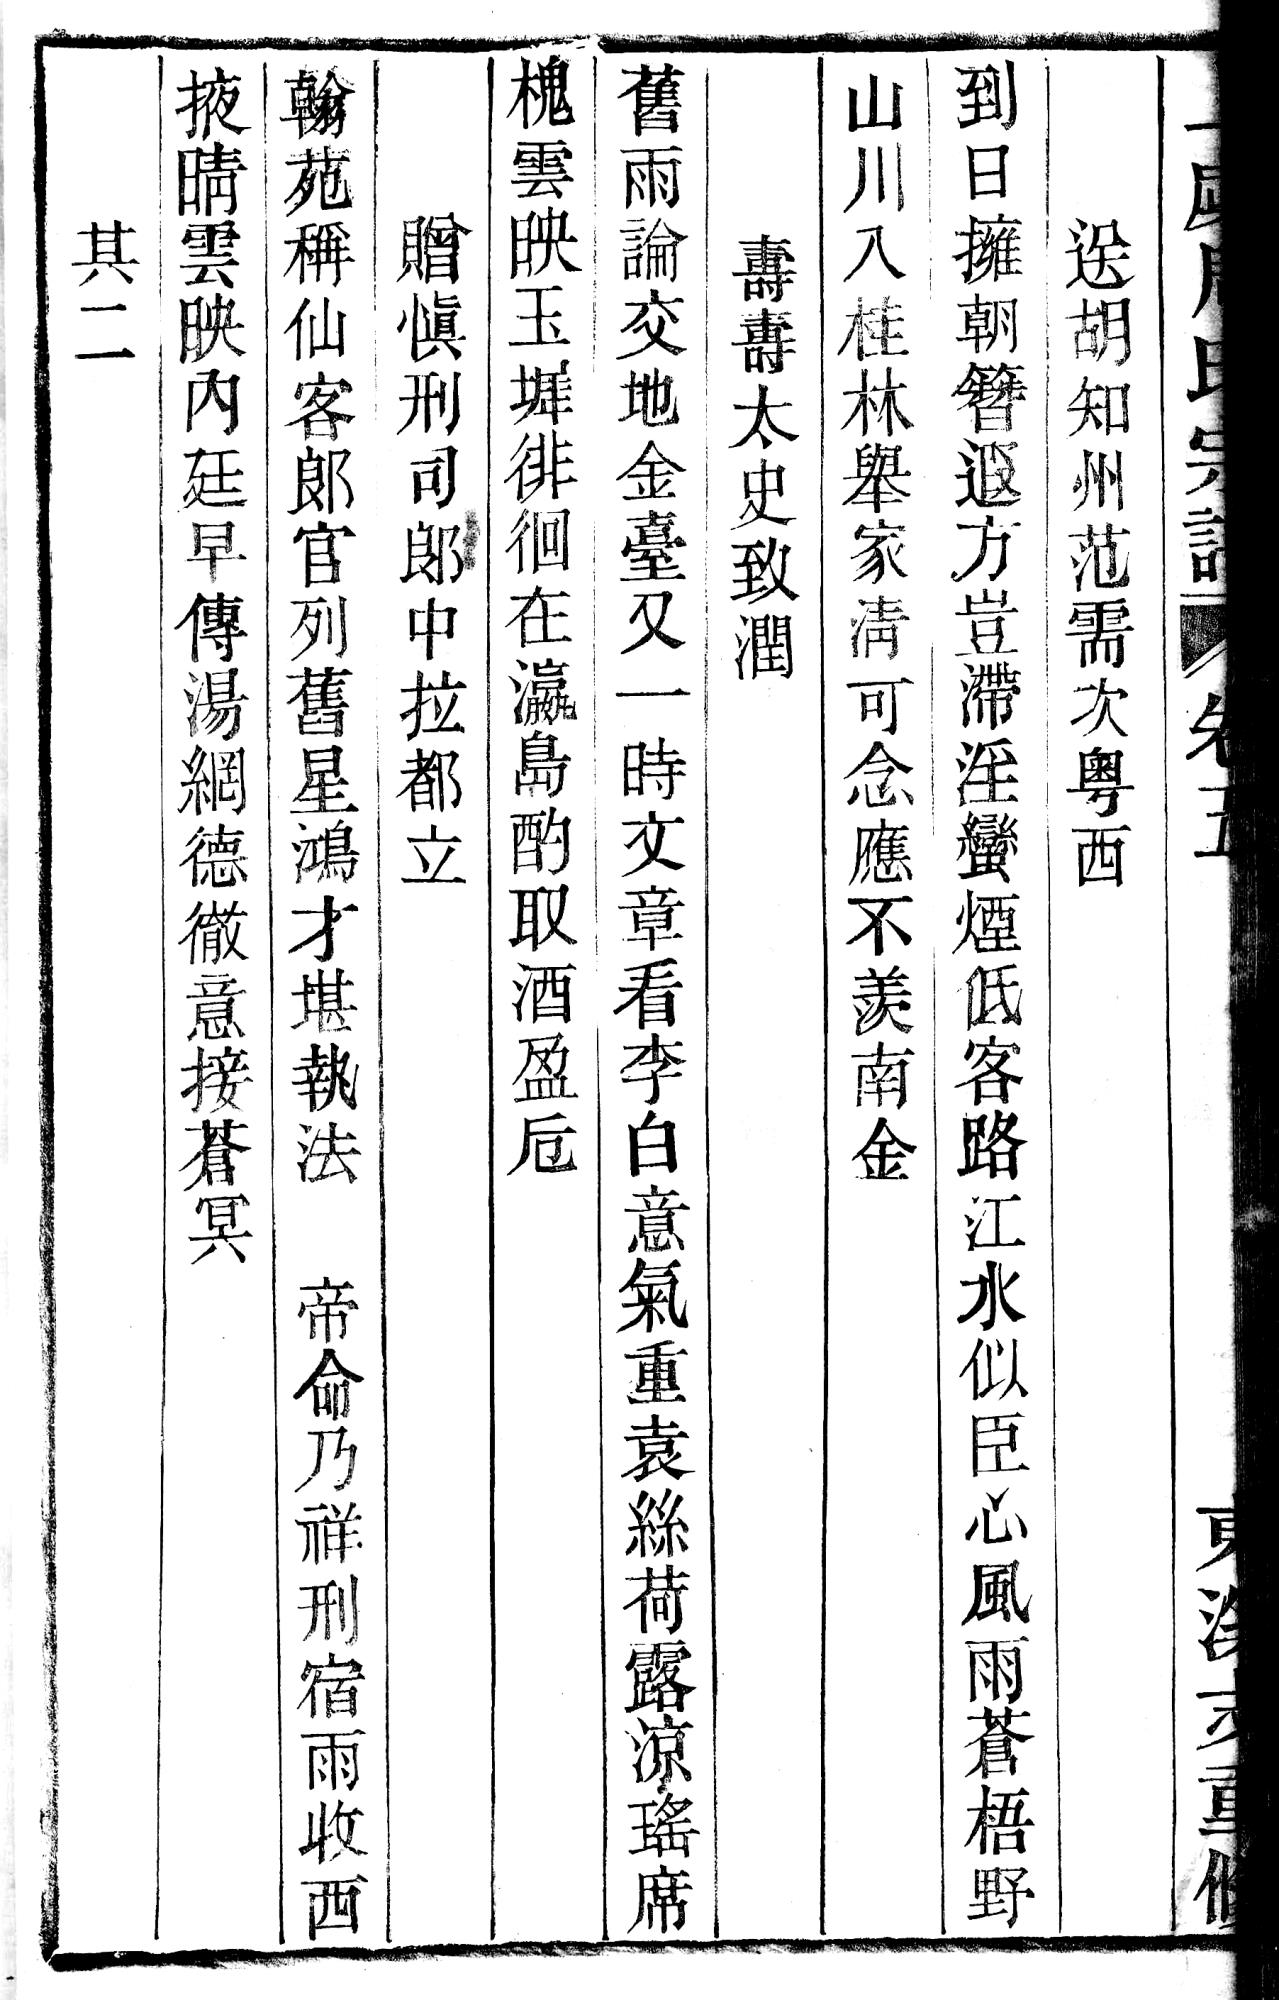 氏宗譜 卷五 重修
送胡知州范需次粤西
到日擁朝簪遐方豈滯淫蠻煙低客路江水似臣心風雨蒼梧野
山川入桂林舉家淸可念應不羨南金
壽壽太史致潤
舊雨論交地金臺又一時文章看李白意氣重袁絲荷露涼瑤席
槐雲映玉墀徘徊在瀛島酌取酒盈卮
贈愼刑司郎中拉都立
翰苑稱仙客郎官列舊星鴻才堪執法　帝命乃祥刑宿雨收西
掖晴雲映內廷早傳湯網德徹意接蒼冥
其二